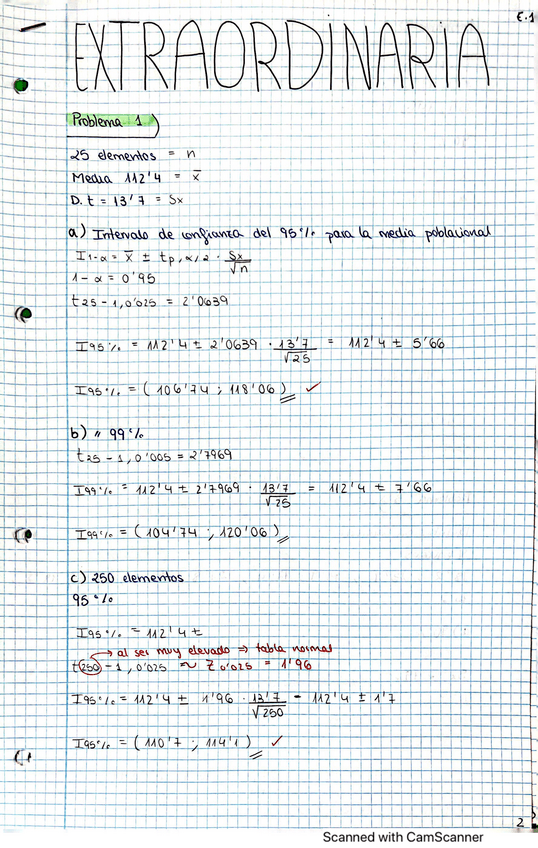 E.1
EXTRAORDINARIA
Problema 1
25 elementos = n
Media 112'4 = x̄
D. t = 13'7 = Sx
a) Intervalo de confianza del 95% para la media poblacional
I1-α = x̄ ± tp, α/2 · Sx/√n
1-α = 0'95
t25-1, 0'025 = 2'0639
I95% = 112'4 ± 2'0639 · 13'7/√25 = 112'4 ± 5'66
I95% = (106'74 ; 118'06) ✓
b) " 99%
t25-1, 0'005 = 2'7969
I99% = 112'4 ± 2'7969 · 13'7/√25 = 112'4 ± 7'66
I99% = (104'74 ; 120'06)
c) 250 elementos
95%
I95% = 112'4 ±
→ al ser muy elevado ⇒ tabla normal
t250-1, 0'025 ≈ Z0'025 = 1'96
I95% = 112'4 ± 1'96 · 13'7/√250 = 112'4 ± 1'7
I95% = (110'7 ; 114'1) ✓
2
Scanned with CamScanner